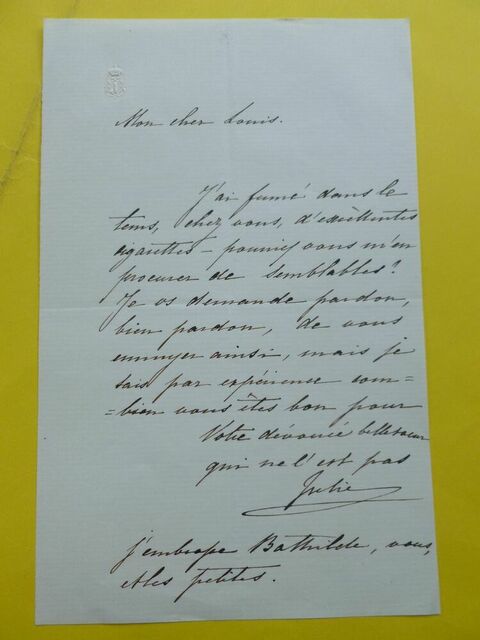 Mon cher Louis.
J'ai fumé dans le
tems, chez vous, d'excellentes
cigarettes – pourriez vous m'en
procurer de semblables?
Je vs demande pardon,
bien pardon, de vous
ennuyer ainsi, mais je
sais par expérience com=
=bien vous êtes bon pour
Votre dévouée bellesoeur
qui ne l'est pas
Julie
j'embrasse Bathilde, vous,
et les petites.